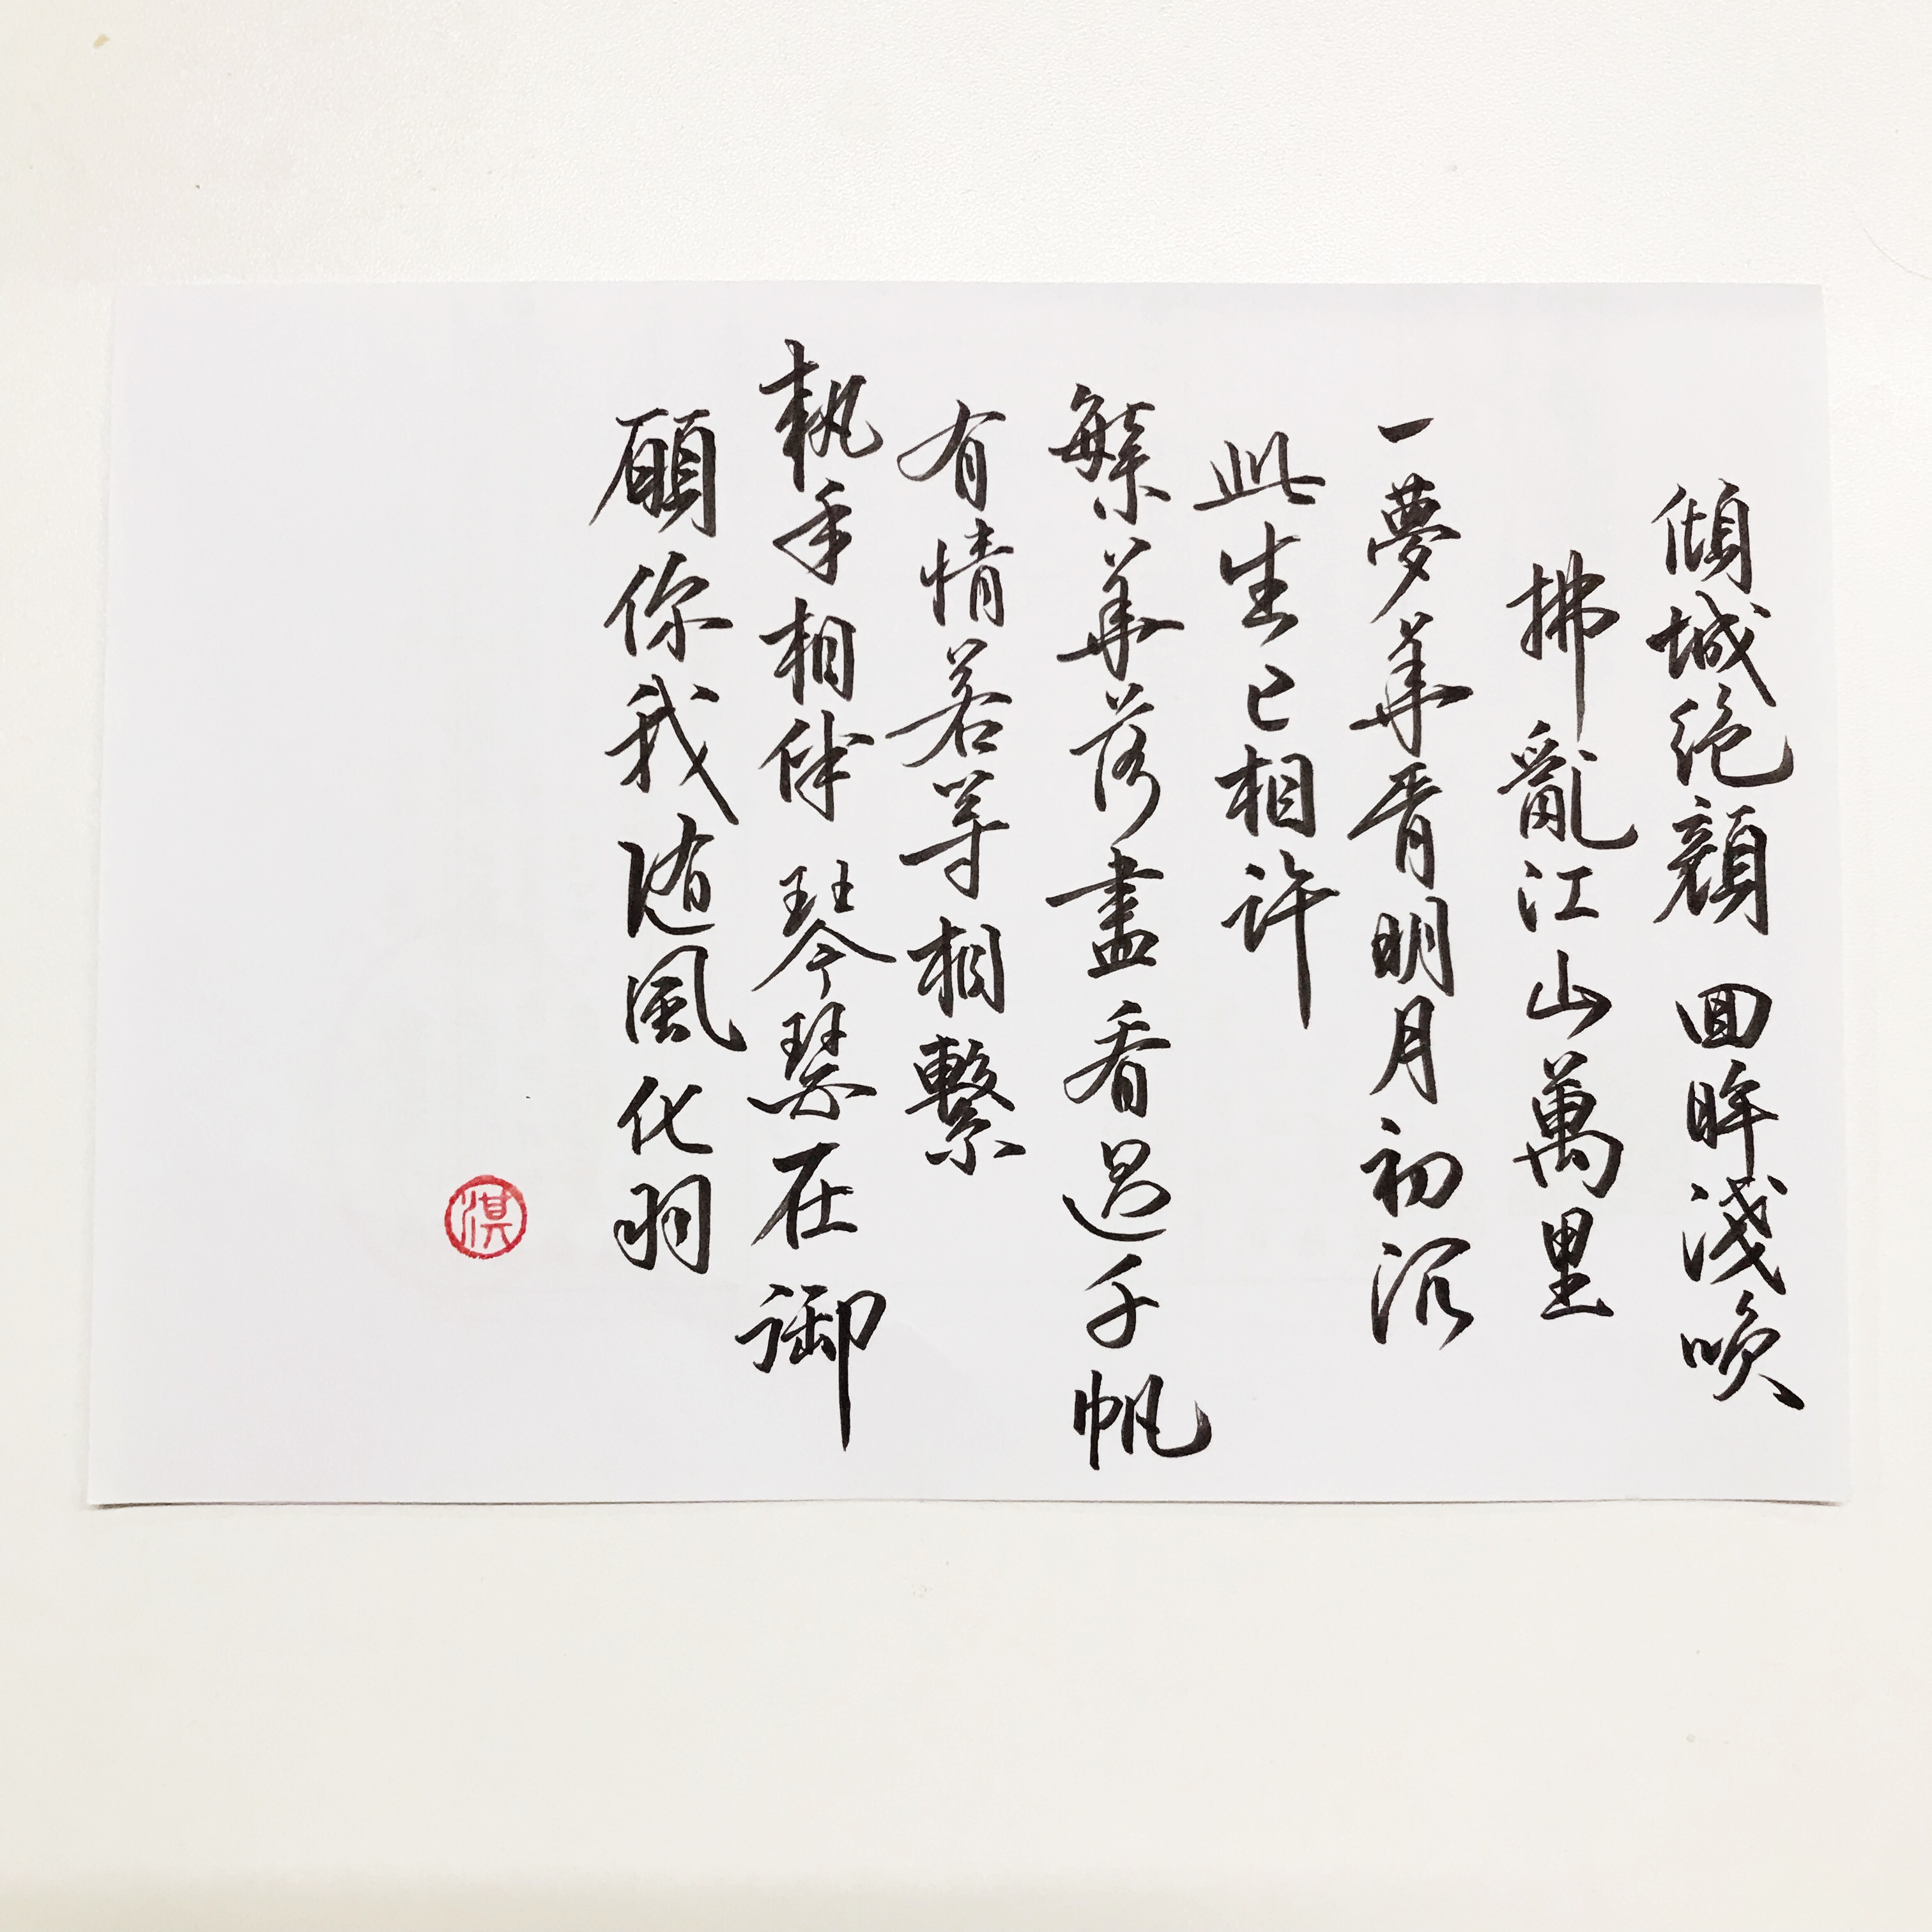 傾城絕顏 回眸淺喚
拂亂江山萬里
一夢華胥明月初沉
此生已相許
繁華落盡看過千帆
有情若等相繫
執手相伴 琴瑟在御
願你我随風化羽
淇